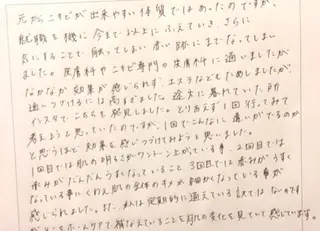 元からニキビが出来やすい体質ではあったのですが、
就職を機に今まで以上にふえていき、さらに
気にすることで触ってしまい赤い跡にまでなってしまい
ました。皮膚科やニキビ専門の皮膚科に通いましたが
なかなか効果が感じられず、エステなどもためしましたが、
通いつづけるには高すぎました。途方に暮れていた時
インスタでこちらを発見しました。とりあえず1回行ってみて
考えようと思っていたのですが、1回でこんなに違いがでるのか
と思うほど効果を感じつづけてみようと思いました。
1回目では肌の明るさがワントーン上がっている事、2回目では
赤みがだんだんうすくなっていること、3回目では赤みがうすく
なっている事にくわえ肌の全体のキメが細かくなっている事が
感じられました。また、私は定期的に通えている訳ではないのです
がそこをホームケアで補なえていることを肌の変化を見ていて感じています。